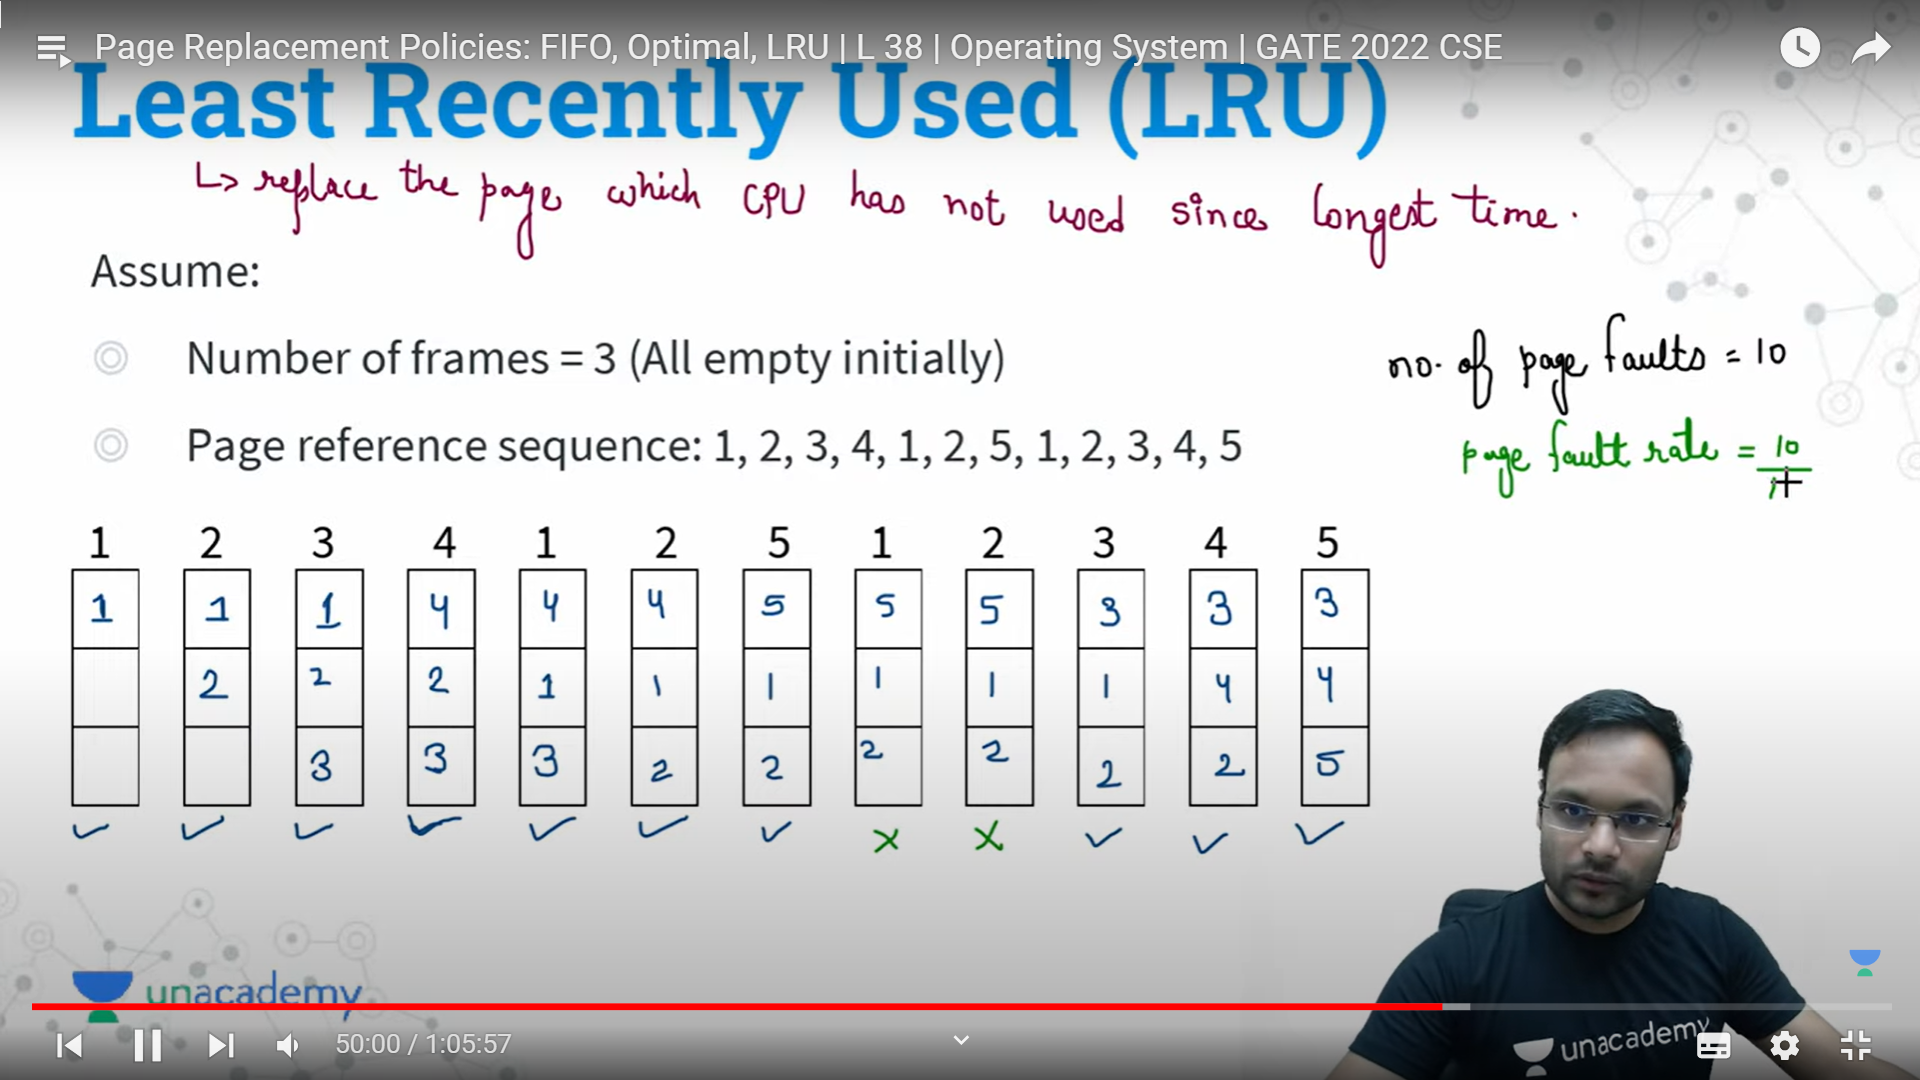 Page Replacement Policies: FIFO, Optimal, LRU | L 38 | Operating System | GATE 2022 CSE
Least Recently Used (LRU)
↳ replace the page which CPU has not used since longest time.
Assume:
Number of frames = 3 (All empty initially)
no. of page faults = 10
Page reference sequence: 1, 2, 3, 4, 1, 2, 5, 1, 2, 3, 4, 5
page fault rate = 10/1
1 2 3 4 1 2 5 1 2 3 4 5
1 1 1 4 4 4 5 5 5 3 3 3
2 2 2 1 1 1 1 1 1 4 4
3 3 3 2 2 2 2 2 2 5
✓ ✓ ✓ ✓ ✓ ✓ ✓ x x ✓ ✓ ✓
unacademy
50:00 / 1:05:57
unacademy